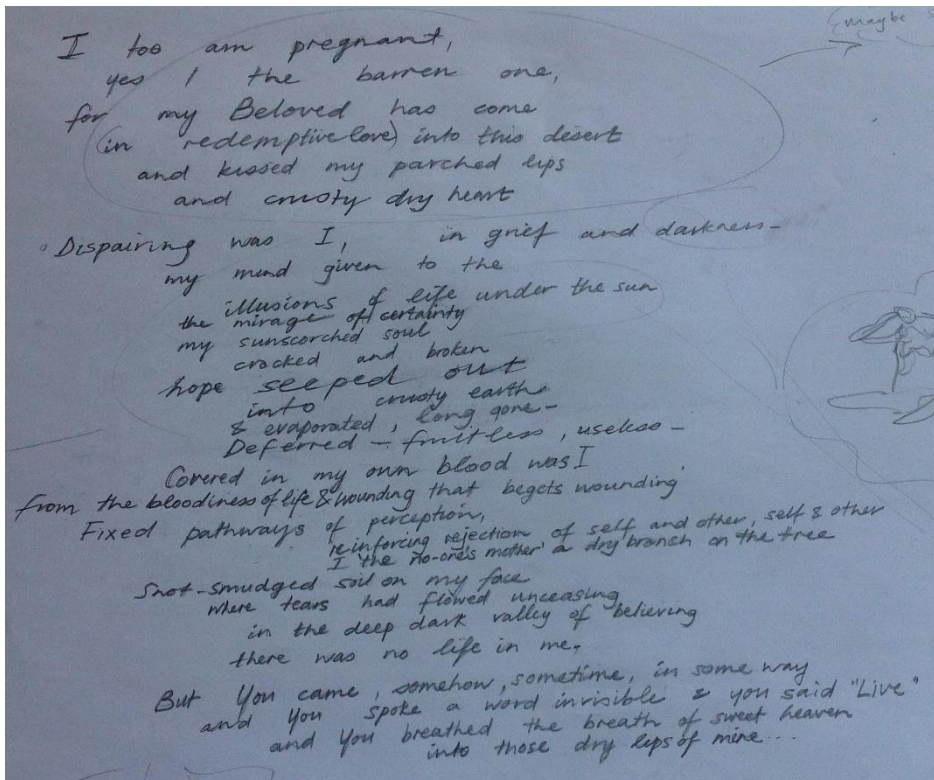 {maybe
I too am pregnant,
yes I the barren one,
for my Beloved has come
(in redemptive love) into this desert
and kissed my parched lips
and crusty dry heart
Dispairing was I, in grief and darkness-
my mind given to the
illusions of life under the sun
the mirage of certainty
my sunscorched soul
cracked and broken
hope seeped out
into crusty earth
& evaporated, long gone-
Deferred - fruitless, useless -
Covered in my own blood was I
from the bloodiness of life & wounding that begets wounding
Fixed pathways of perception,
reinforcing rejection of self and other, self & other
I 'the no-one's mother' a dry branch on the tree
Snot-smudged soil on my face
where tears had flowed unceasing
in the deep dark valley of believing
there was no life in me.
But You came, somehow, sometime, in some way
and You spoke a word invisible & you said "Live"
and You breathed the breath of sweet heaven
into those dry lips of mine...